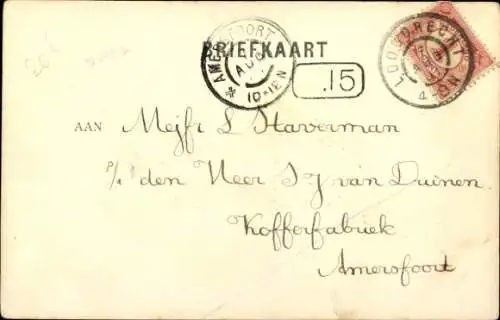 BRIEFKAART
AMERSFOORT
AUG
10-11EN
.15
LOOSDRECHT
4-5N
AAN Mejfr S Haverman
p/a den Heer S J van Duinen
Kofferfabriek
Amersfoort